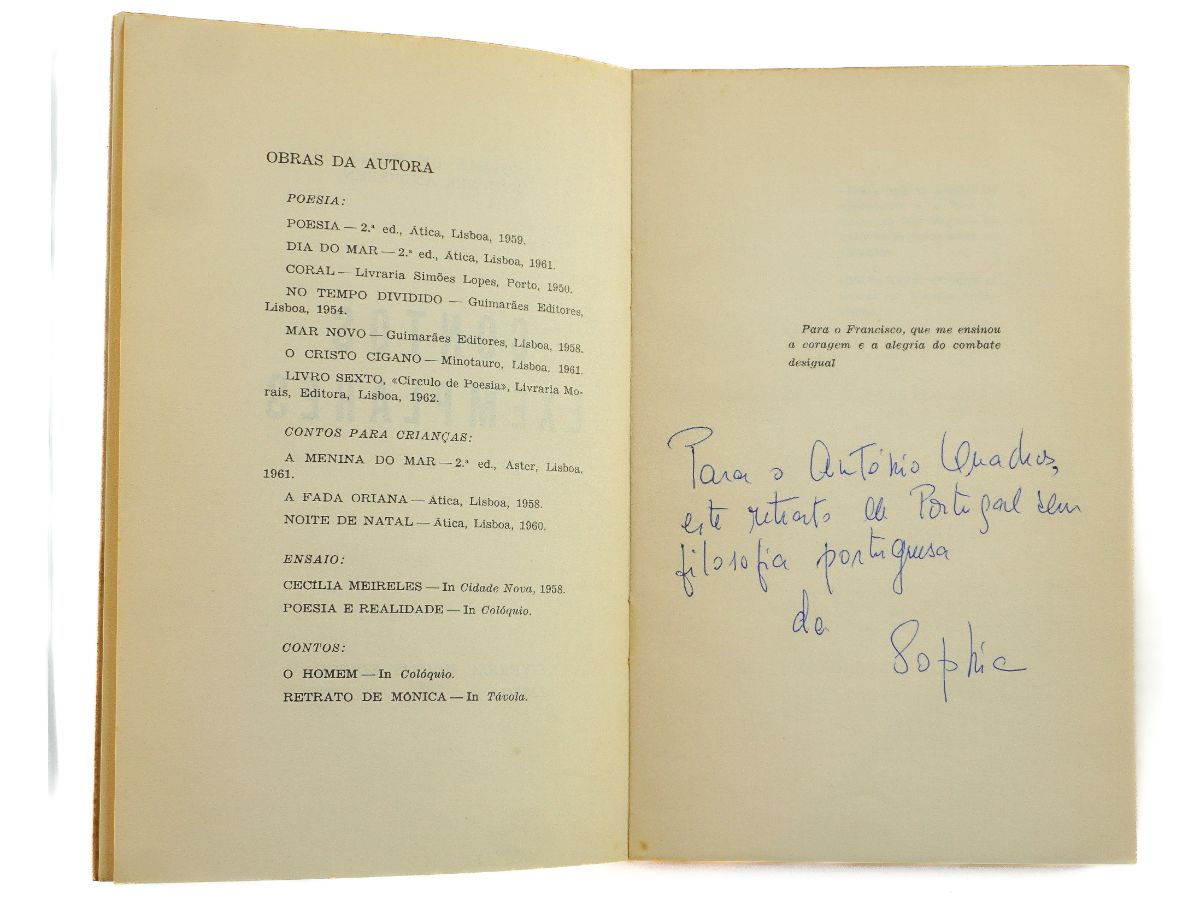 OBRAS DA AUTORA
POESIA:
POESIA — 2.ª ed., Ática, Lisboa, 1959.
DIA DO MAR — 2.ª ed., Ática, Lisboa, 1961.
CORAL — Livraria Simões Lopes, Porto, 1950.
NO TEMPO DIVIDIDO — Guimarães Editores,
Lisboa, 1954.
MAR NOVO — Guimarães Editores, Lisboa, 1958.
O CRISTO CIGANO — Minotauro, Lisboa, 1961.
LIVRO SEXTO, «Círculo de Poesia», Livraria Mo-
rais, Editora, Lisboa, 1962.
CONTOS PARA CRIANÇAS:
A MENINA DO MAR — 2.ª ed., Aster, Lisboa,
1961.
A FADA ORIANA — Ática, Lisboa, 1958.
NOITE DE NATAL — Ática, Lisboa, 1960.
ENSAIO:
CECÍLIA MEIRELES — In Cidade Nova, 1958.
POESIA E REALIDADE — In Colóquio.
CONTOS:
O HOMEM — In Colóquio.
RETRATO DE MÓNICA — In Távola.
Para o Francisco, que me ensinou
a coragem e a alegria do combate
desigual
Para o António Quadros,
este retrato de Portugal sem
filosofia portuguesa
da
Sophia